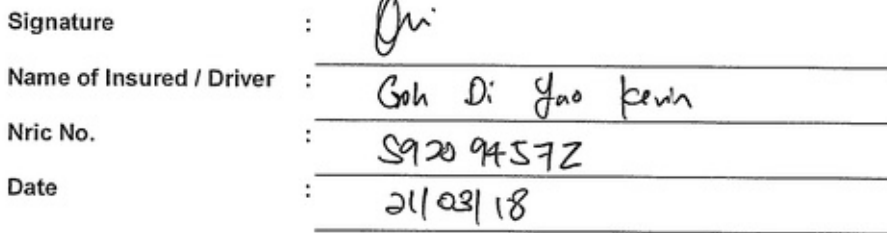 Signature :
Name of Insured / Driver : Goh Di Yao Kevin
Nric No. : S9209457Z
Date : 21/03/18